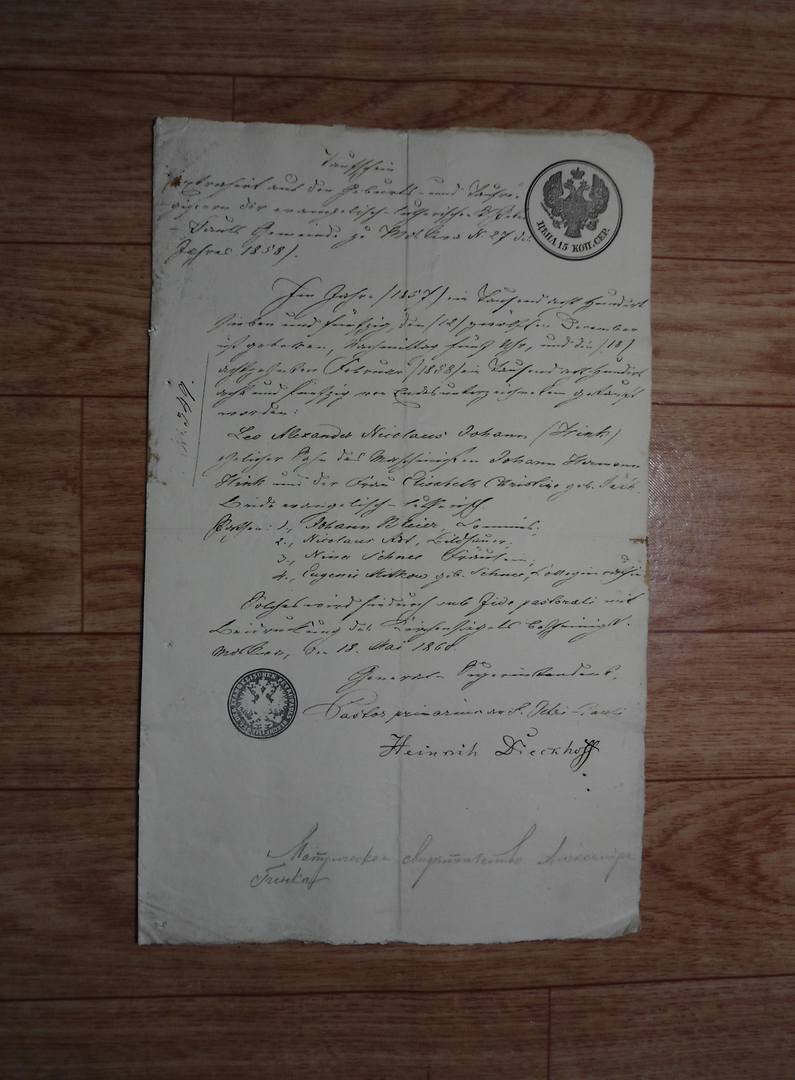 Taufschein
(extrahirt aus den Geburts- und Taufre-
gistern der evangelisch-lutherischen St. Petri
-Pauls Gemeinde zu Moskwa N. 27 des
Jahres 1858).
ЦѢНА 15 КОП. СЕР.
Im Jahre (1857) ein Tausend acht Hundert
sieben und fünfzig, den (12) zwölften December
ist geboren, Nachmittag fünf Uhr, und den (18)
achtzehnten Februar (1858) ein Tausend acht Hundert
acht und fünfzig von Endesunterzeichnetem getauft
worden:
Leo Alexander Nicolaus Johann (Hink)
ehelicher Sohn des Maschinisten Johann Hermann
Hink und der Frau Elisabeth Christine geb.
Beide evangelisch-lutherisch
Pathen: 1., Johann
2., Nicolaus Bildhauer;
3., Nina Fräulein;
4., Eugenie geb.
Solches wird hiedurch sub fide pastorali mit
Beidruckung des Kirchensiegels bescheinigt.
Moskwa, den 18. Mai 1860.
General-Superintendent,
Pastor primarius an St. Petri-Pauli
Heinrich Dieckhoff
Метрическое свидетельство Александра